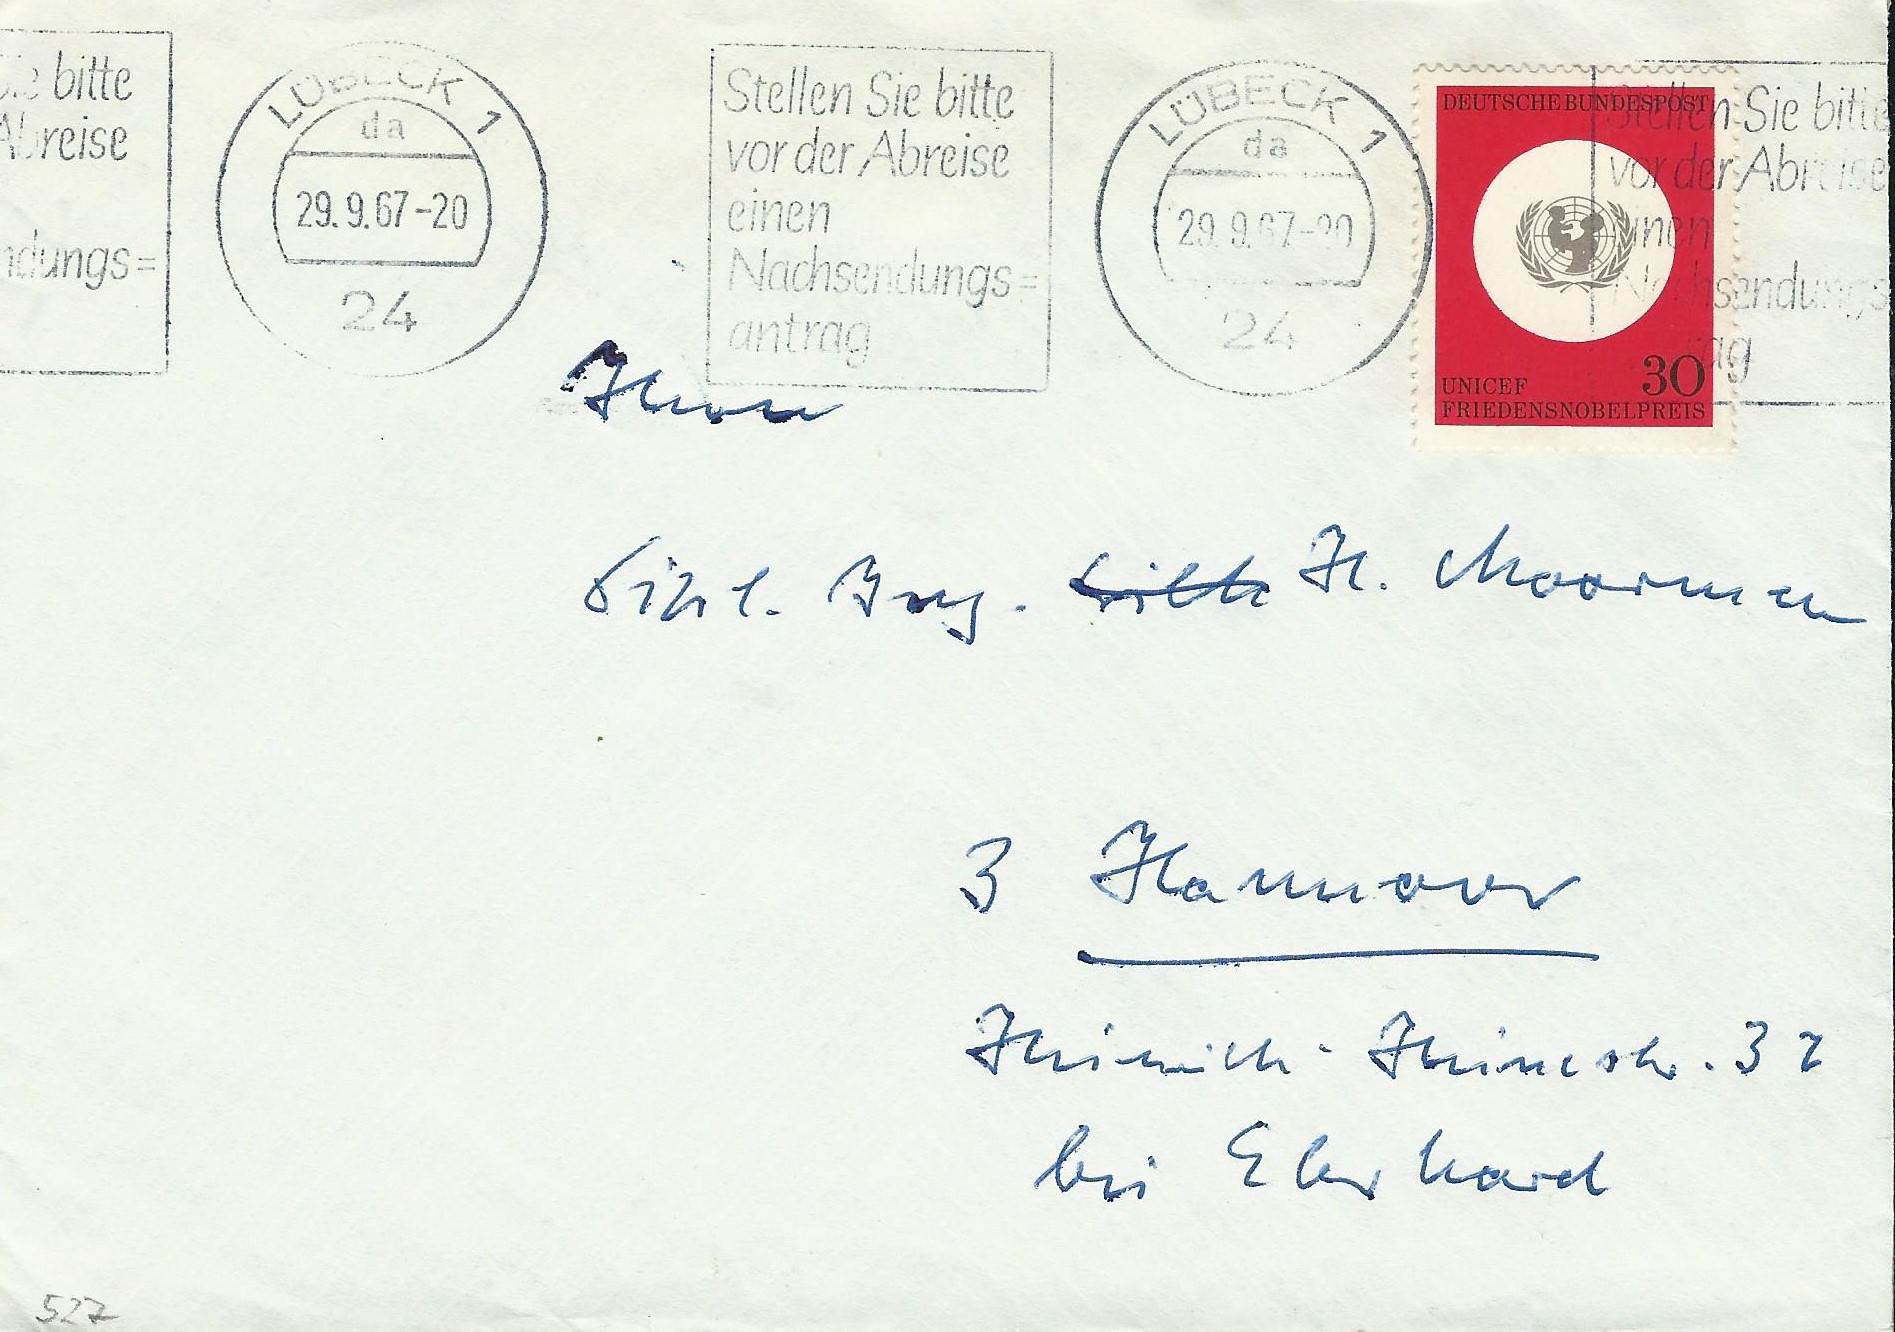 Sie bitte
Abreise
ndungs=
LÜBECK 1
da
29.9.67-20
24
Stellen Sie bitte
vor der Abreise
einen
Nachsendungs=
antrag
LÜBECK 1
da
29.9.67-20
24
DEUTSCHE BUNDESPOST
30
UNICEF
FRIEDENSNOBELPREIS
Stellen Sie bitte
vor der Abreise
einen
Nachsendungs
rag
Herrn
Dipl. Ing. H. Moorman
3 Hannover
Heinrich-Heinestr. 32
bei Eberhard
527